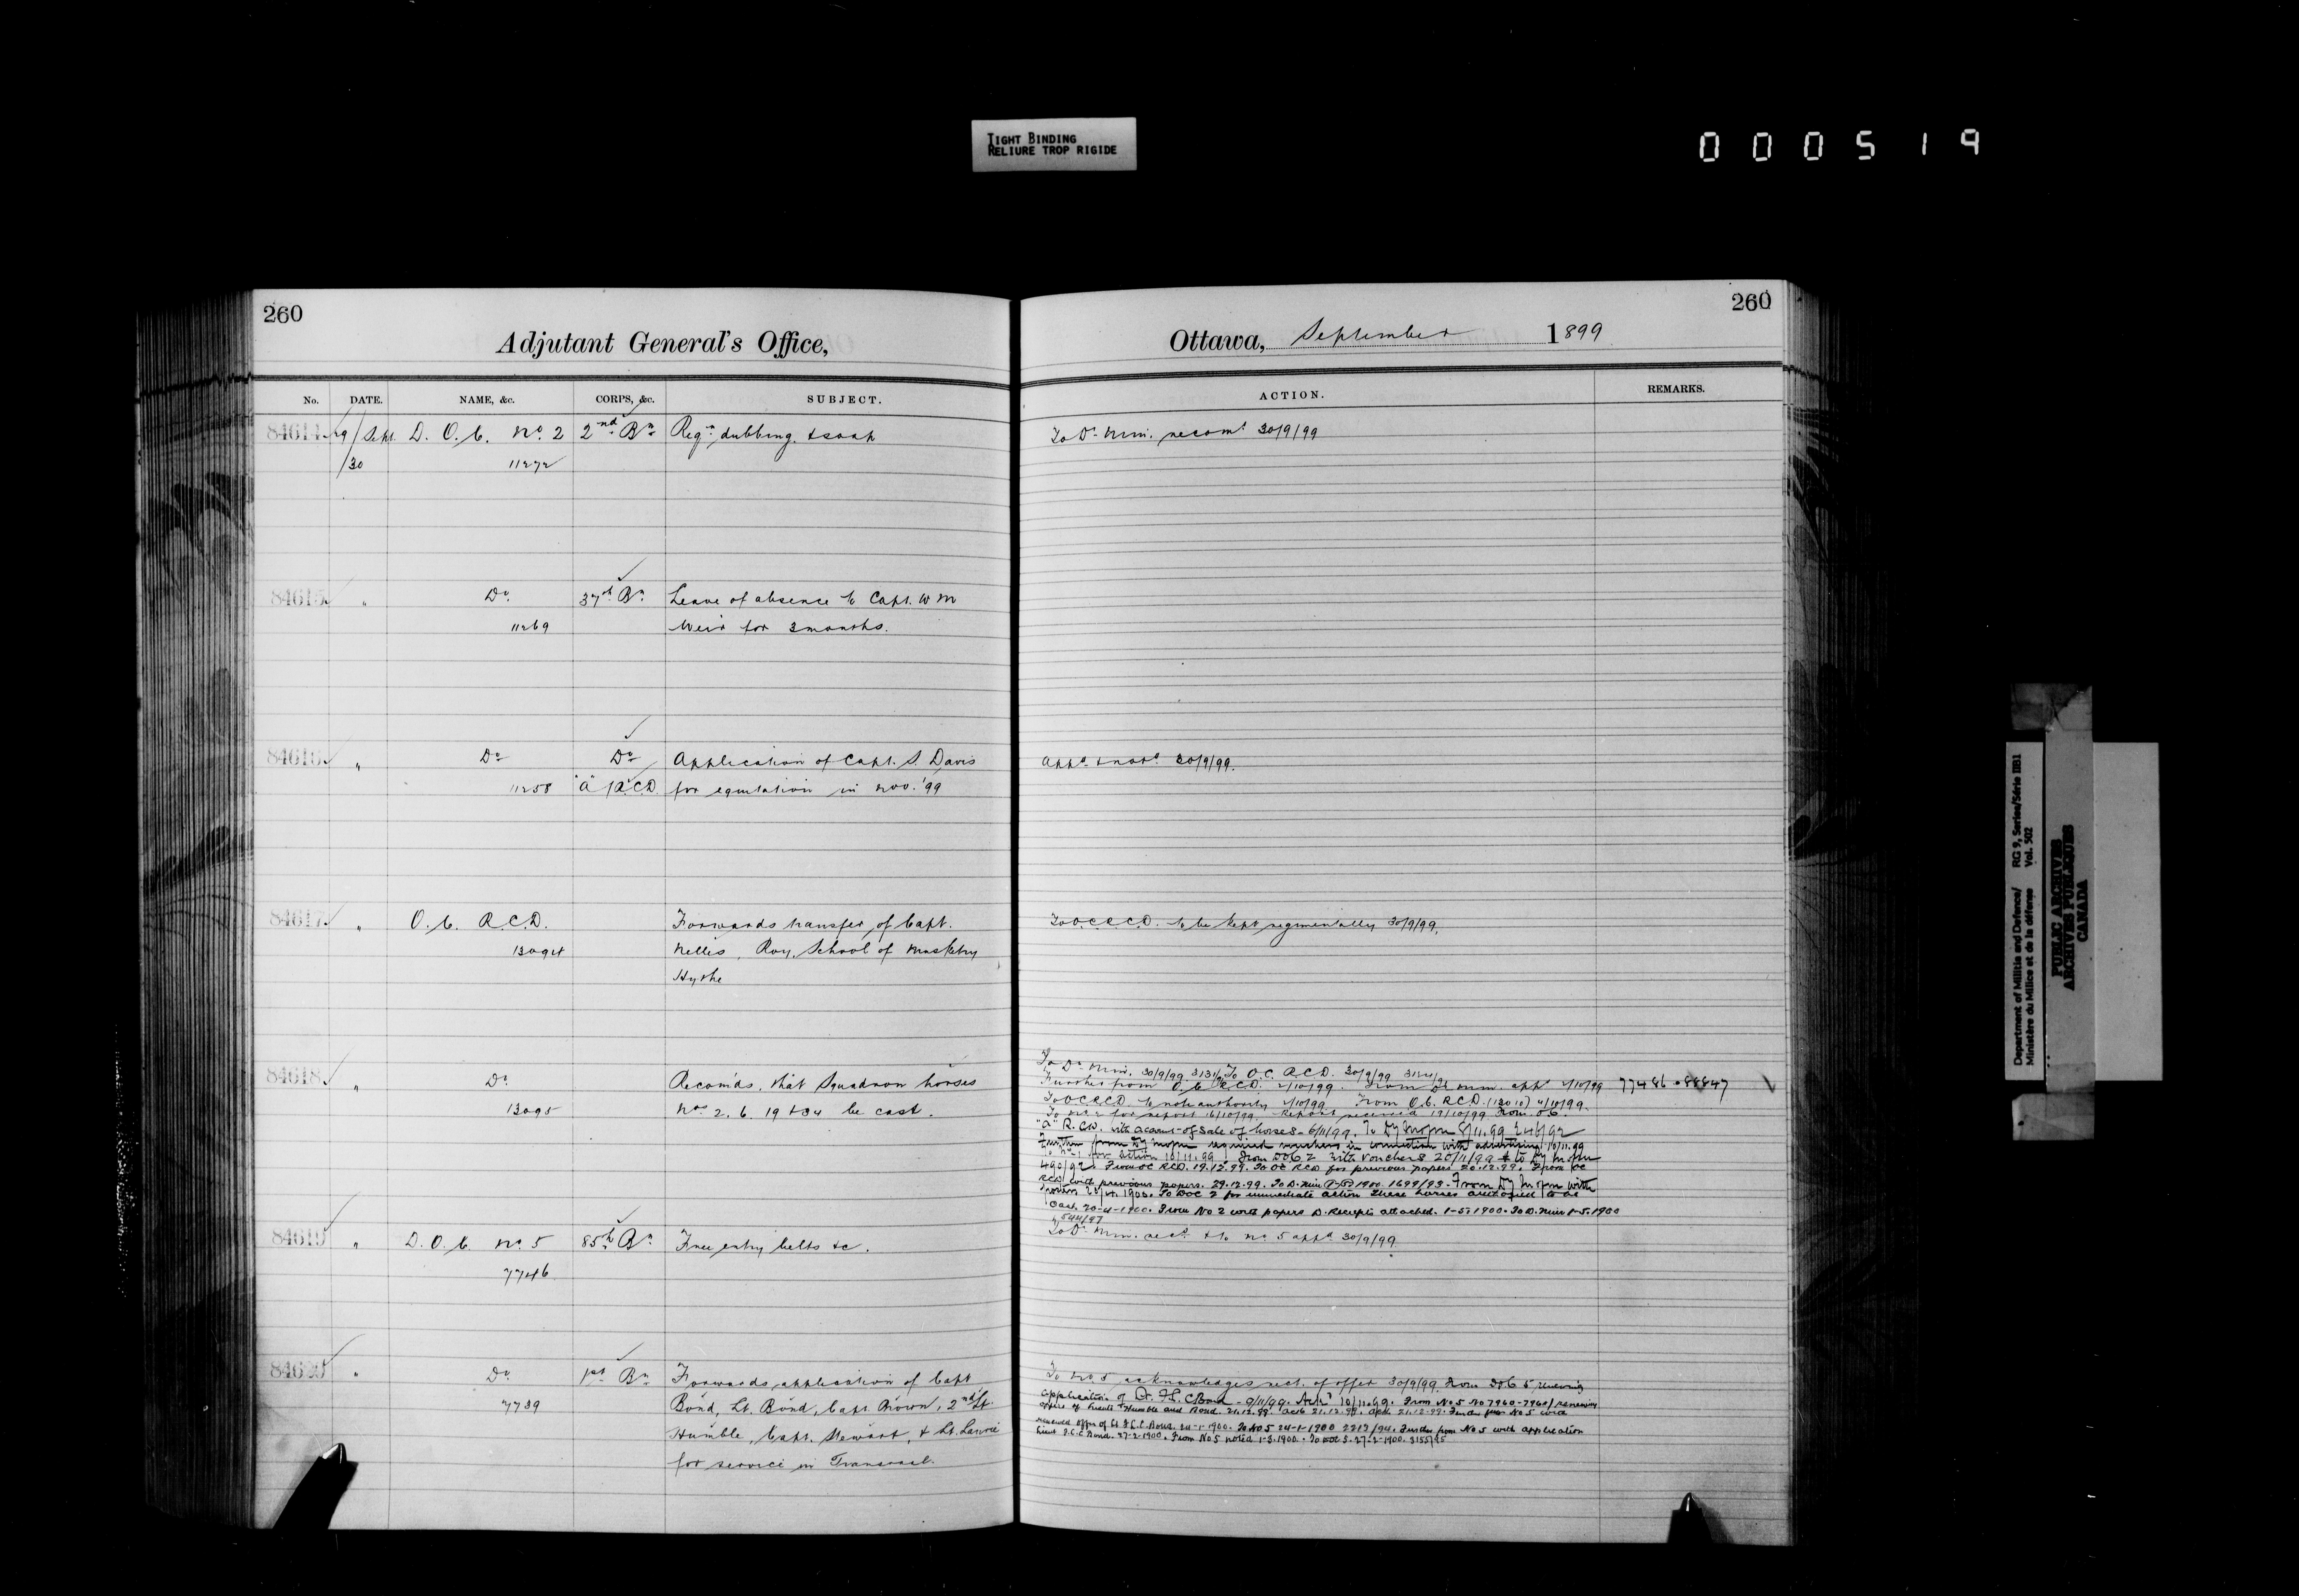 TIGHT BINDING
RELIURE TROP RIGIDE
000519
260
Adjutant General's Office,
No. DATE. NAME, &c. CORPS, &c. SUBJECT.
84614 29/Sept. D. O. C. No. 2 2nd Bn Reqn dubbing & soap
/30 11272
84615 " Do 37th Bn Leave of absence to Capt. W M
11269 Weir for 3 months.
84616 " Do Do Application of Capt. S. Davis
11258 "A" R.C.D. for equitation in Nov. '99
84617 " O. C. R.C.D. Forwards transfer of Capt.
13094 Nelles, Roy. School of Musketry
Hythe
84618 " Do Recomds. that Squadron horses
13095 Nos 2. 6. 19 & 34 be cast.
84619 " D. O. C. No. 5 85th Bn Free entry belts &c.
7746
84620 " Do 1st Bn Forwards application of Capt
7739 Bond, Lt. Bond, Capt. Brown, 2nd Lt.
Humble, Capt. Stewart, & Lt. Laurie
for service in Transvaal.
260
Ottawa, September 1899
ACTION. REMARKS.
To Dy. Min. recomd 30/9/99
Appd & notd 30/9/99.
To O C R C D. to be kept regimentally 30/9/99.
To Dy. Min. 30/9/99 To O. C. R.C.D. 30/9/99
Further from O. C. R.C.D. 2/10/99. From Dy Min. appd 2/10/99 77486 - 88847
To O C R C D. to note authority From O. C. R.C.D. (13010)
To No 2 for report 16/10/99. Report received 19/10/99 From O.C.
"A" R.C.D. with account of sale of horses - 6/11/99. To Dy Min
Further from Dy required vouchers in connection with advertising
for action 10/11.99 From DOC 2 with vouchers 20/11/99 & to Dy
490/92. From OC RCD. 19.12.99. To OC RCD for previous papers 20.12.99. From OC
RCD with previous papers. 29.12.99. To D. Min 1900 1699/93. From Dy with
1900. To DOC 2 for immediate action these horses authorized to be
Cast. 20-4-1900. From No 2 with papers & Receipts attached. 1-5-1900. To D. Min 1-5-1900
544/97
To Dy. Min. recd & to No. 5 appd 30/9/99
To No. 5 acknowledges rect. of offer 30/9/99. From DOC 5 renewing
application of Lt. F.L.C. Bond - 9/11/99. Ackd 10/11.99. From No 5 No 7960-7961 renewing
offers of Lieuts Humble and Bond. 21.12.99. Ack 21.12.99. Further from No 5 with
renewed offer of Lt F.L.C. Bond. 24-1-1900. To No 5 24-1-1900 2212/94. Further from No 5 with application
Lieut F.L.C. Bond. 27-2-1900. From No 5 noted 1-3-1900. To DOC 5. 27-2-1900. 3155/95
Department of Militia and Defence/ RG 9, Series/Série IIB1
Ministère du Milice et de la défense Vol. 502
PUBLIC ARCHIVES
ARCHIVES PUBLIQUES
CANADA